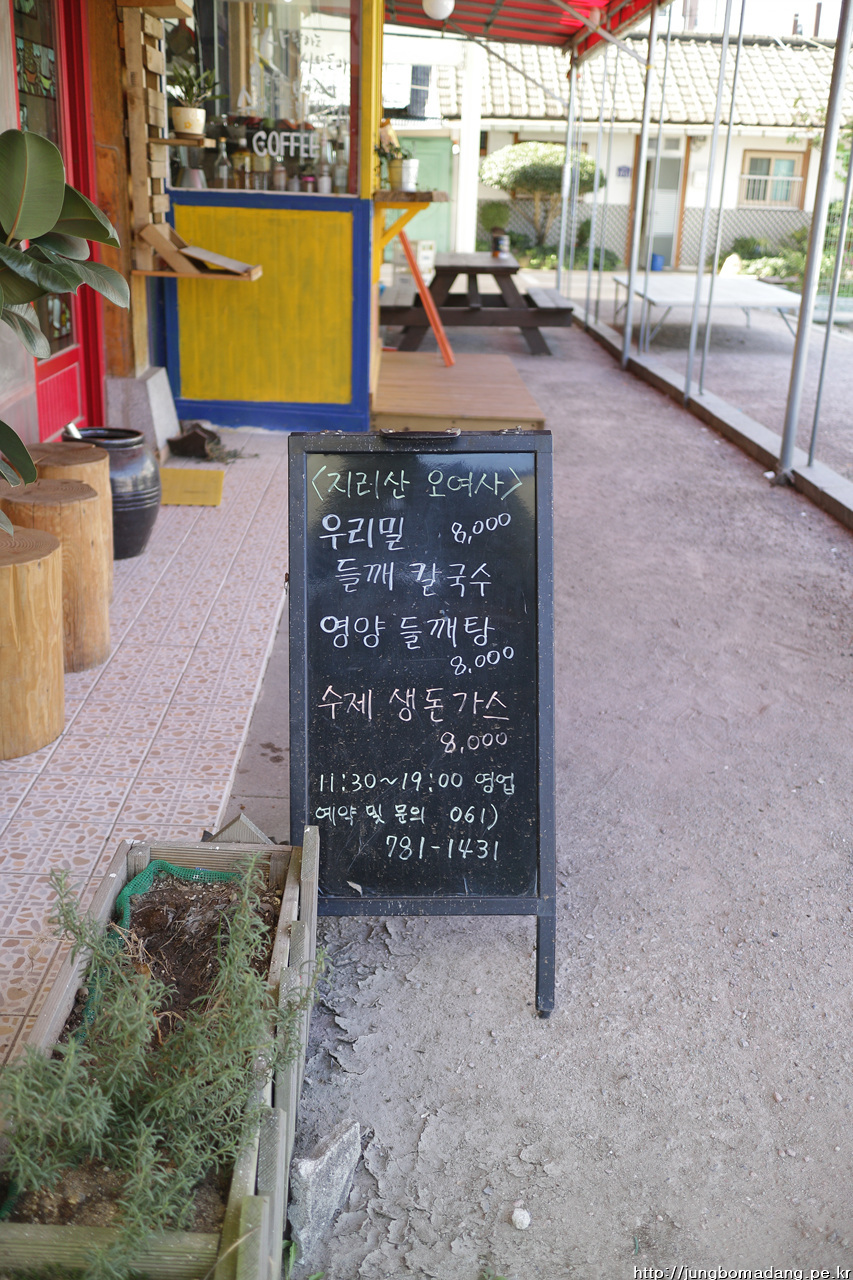 COFFEE
<지리산 오여사>
우리밀 8,000
들깨 칼국수
영양 들깨탕
8,000
수제 생돈가스
8,000
11:30~19:00 영업
예약 및 문의 061)
781-1431
http://jungbomadang.pe.kr